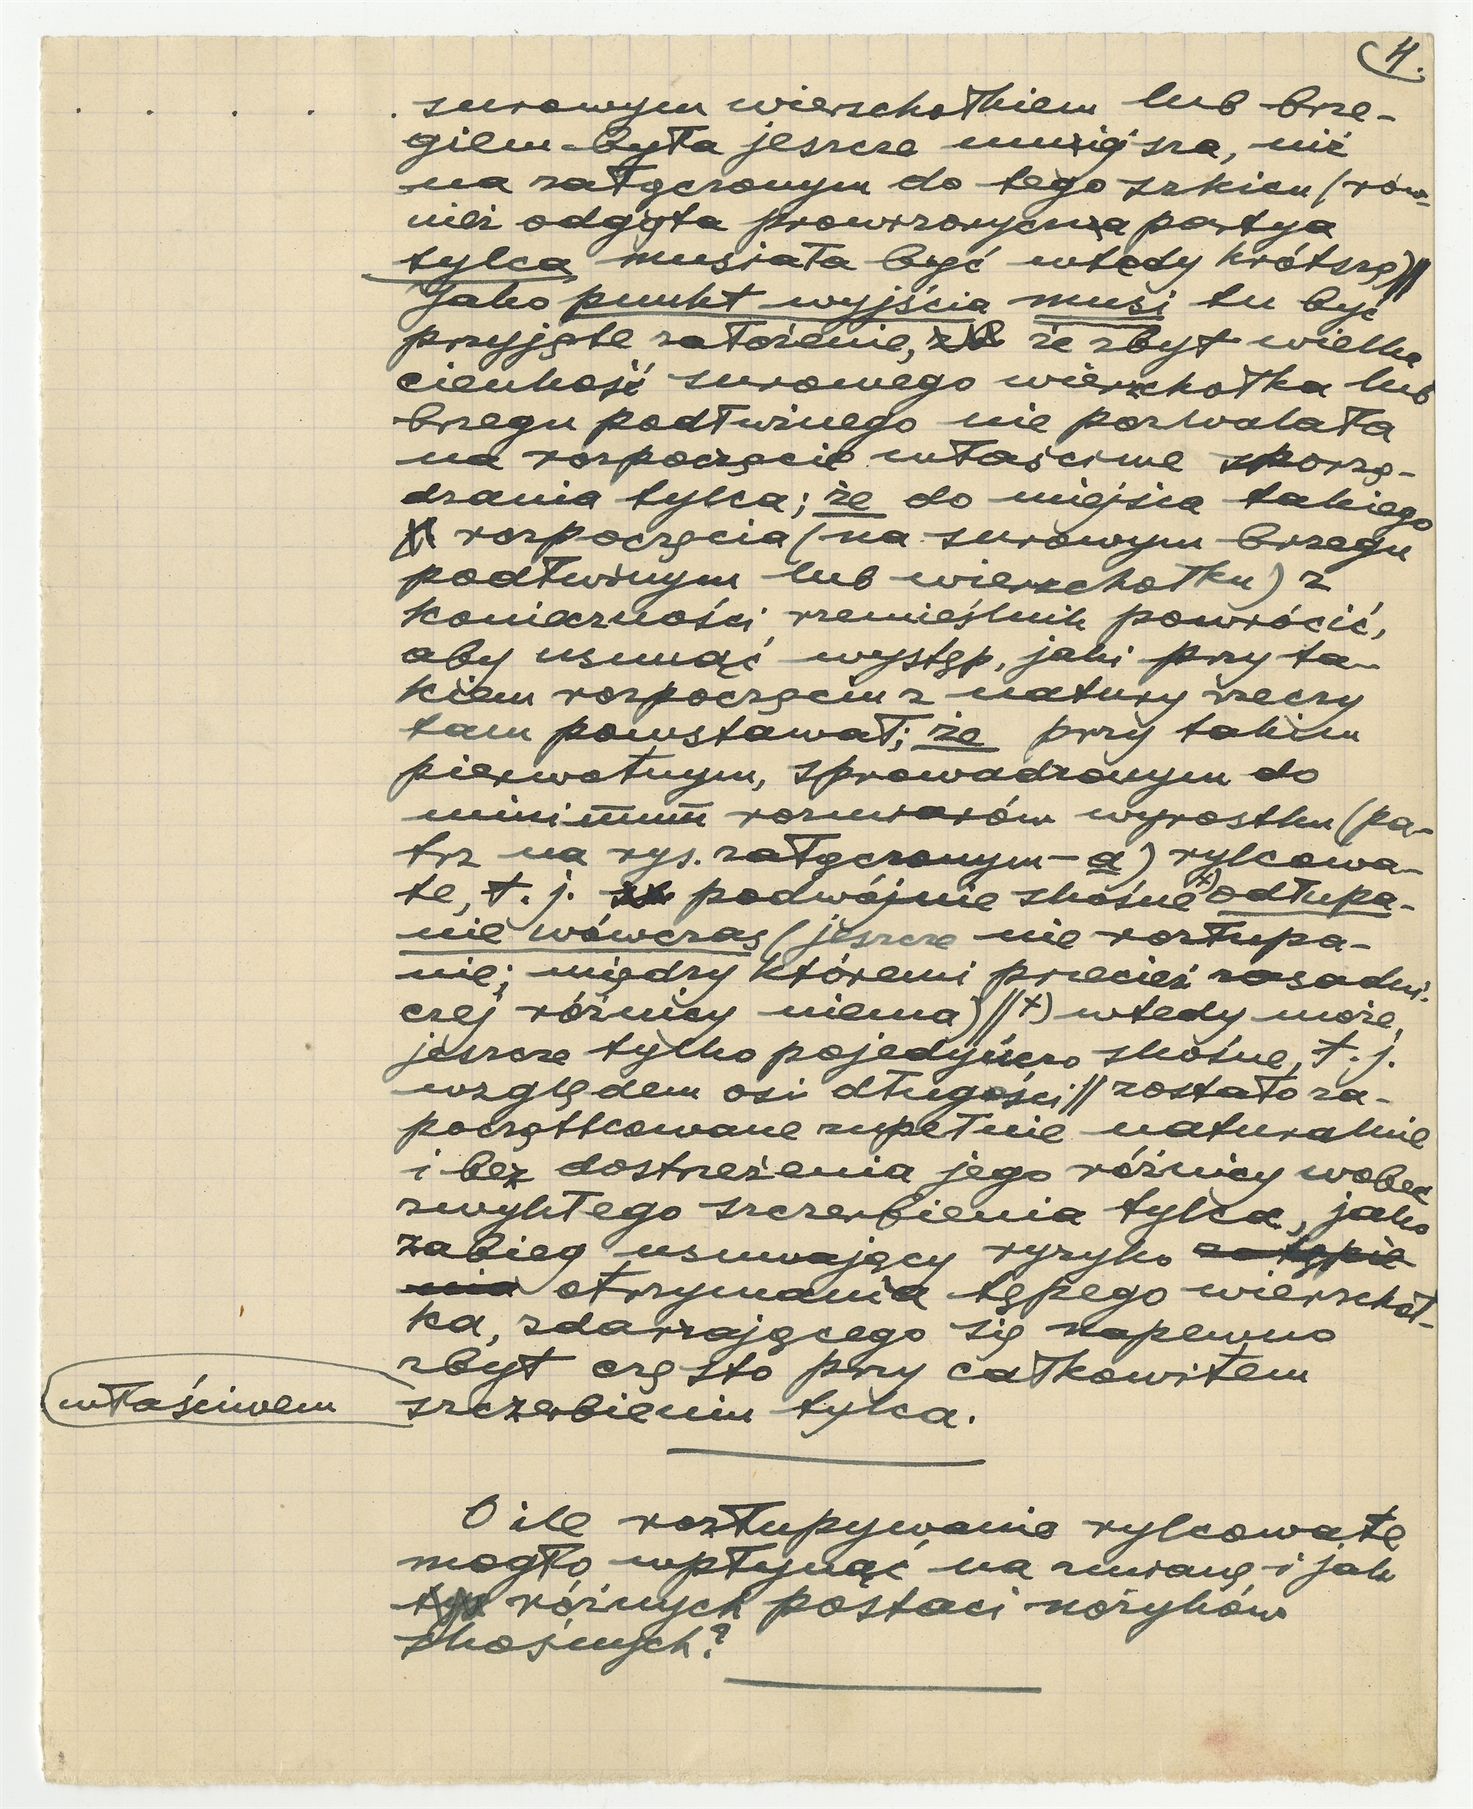 4.
. . . . . surowym wierzchołkiem lub brze-
giem była jeszcze mniejsza, niż
na załączonym do tego szkicu (rów-
nież odgięta prowizoryczna partya
tylca musiała być wtedy krótszą) //
Jako punkt wyjścia musi tu być
przyjęte założenie, że zbyt wielka
cienkość surowego wierzchołka lub
brzegu podłużnego nie pozwalała
na rozpoczęcie właściwe sporzą-
dzania tylca; że do miejsca takiego
rozpoczęcia (na surowym brzegu
podłużnym lub wierzchołku) z
konieczności rzemieślnik powrócić,
aby usunąć występ, jaki przy ta-
kiem rozpoczęciu z natury rzeczy
tam powstawał; że przy takim
pierwotnym, sprowadzonym do
minimum rozmiarów wyrostku (pa-
trz na rys. załączonym – a) rylcowa-
te, t. j. podwójnie skośne x) odłupa-
nie wówczas (jeszcze nie rozłupa-
nie; między któremi przecież zasadni-
czej różnicy niema) // x) wtedy może,
jeszcze tylko pojedyńczo skośne, t. j.
względem osi długości // zostało za-
początkowane zupełnie naturalnie
i bez dostrzeżenia jego różnicy wobec
zwykłego szczerbienia tylca, jako
zabieg usuwający ryzyko zatępie-
nia otrzymania tępego wierzchoł-
ka, zdarzającego się napewno
zbyt często przy całkowitem
właściwem szczerbieniu tylca.
O ile rozłupywanie rylcowate
mogło wpłynąć na zmianę i jak
różnych postaci nożyków
skośnych?